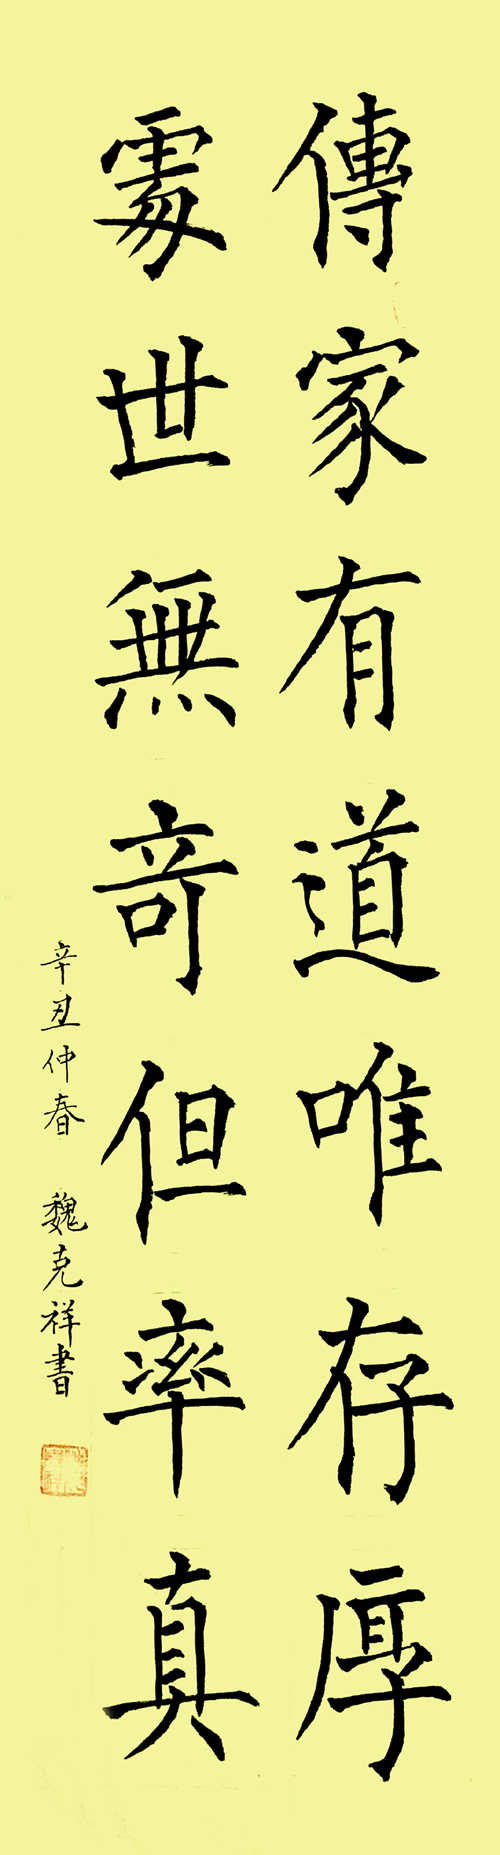 傳家有道唯存厚
處世無奇但率真
辛丑仲春 魏克祥書